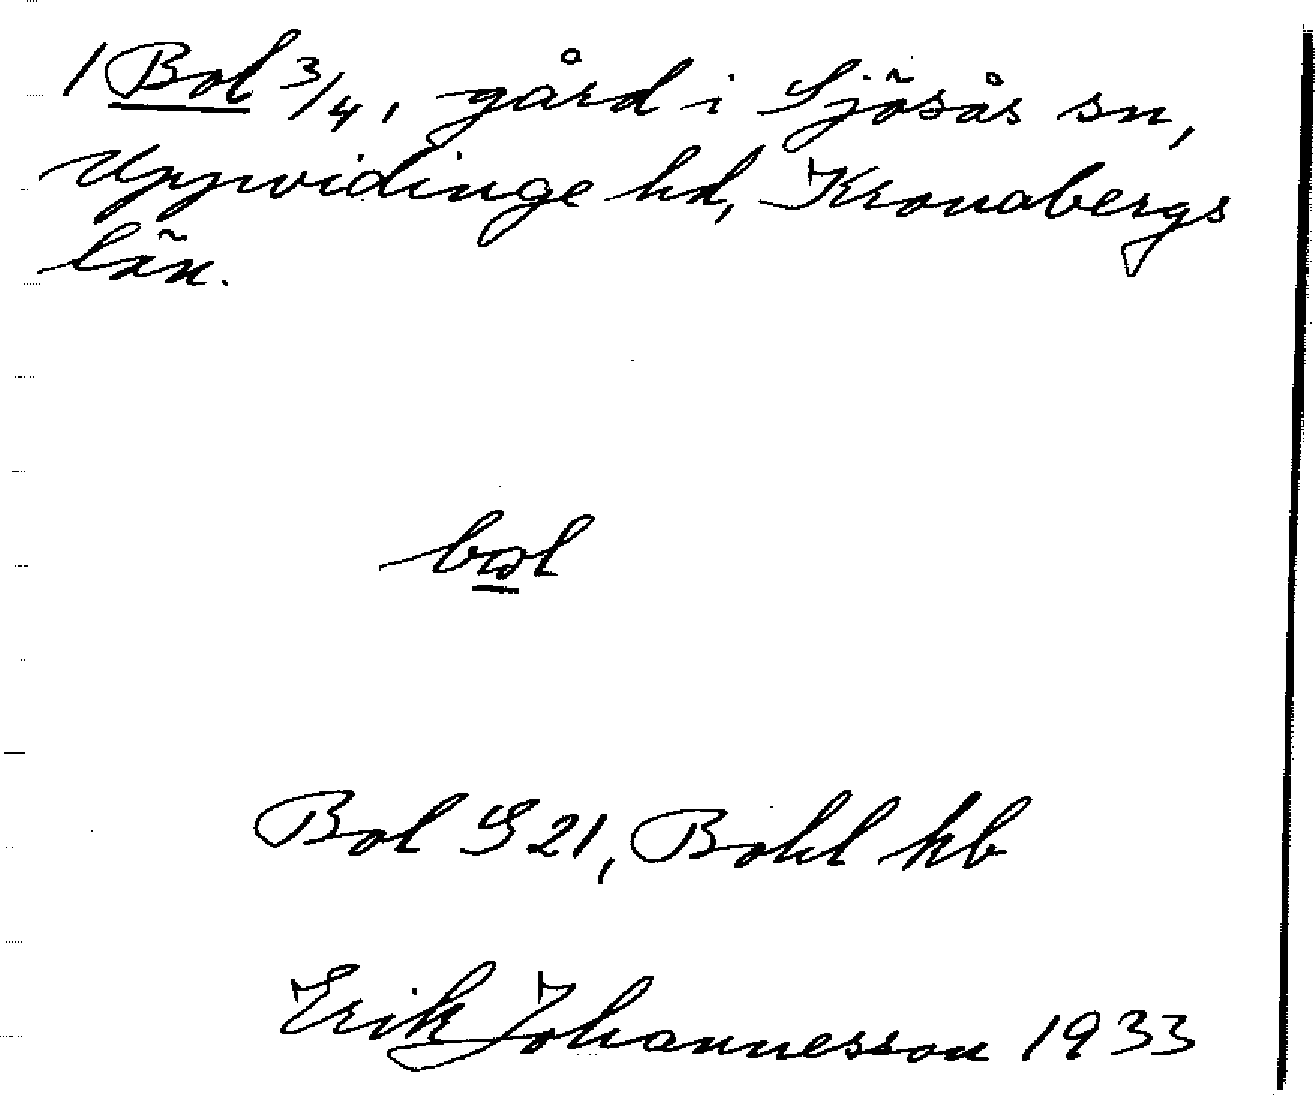 1 Bol 3/4, gård i Sjösås sn,
Uppvidinge hd, Kronobergs
län.
bol
Bol G 21, Bohl hb
Erik Johannesson 1933